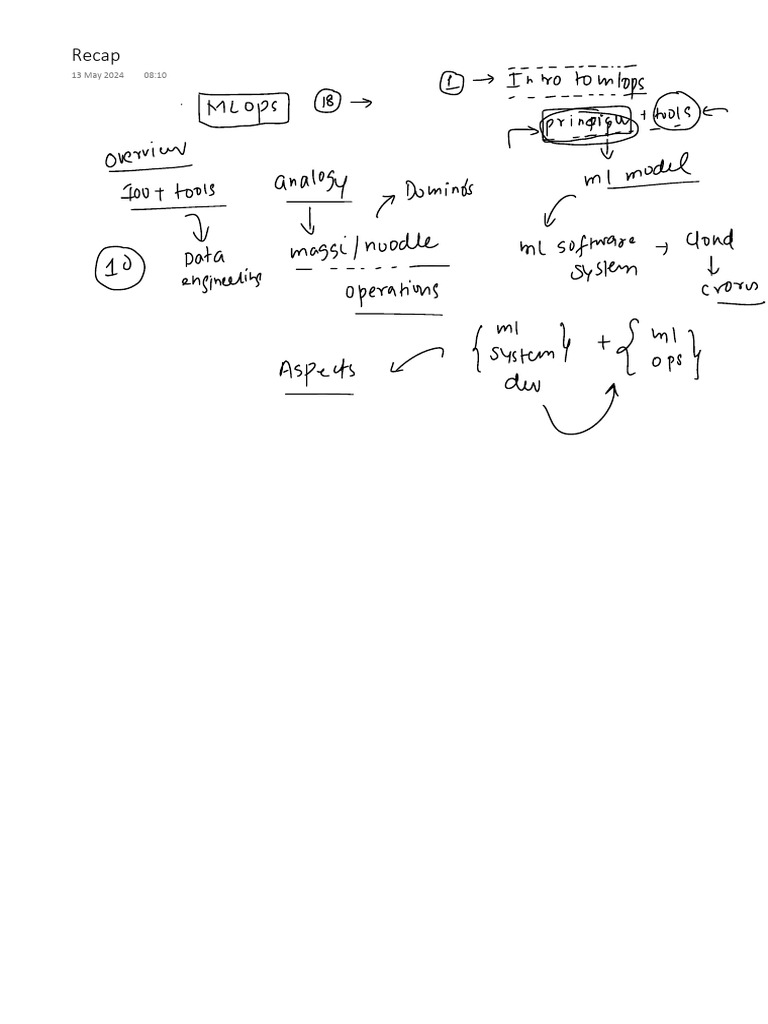 Recap
13 May 2024 08:10
MLOps 18 →
1 → Intro to mlops
principles + tools
Overview
100+ tools
10
Data
engineering
analogy
maggi/noodle
Domino's
operations
ml model
ml software → cloud
system
crores
Aspects
{ ml system dev } + { ml ops }